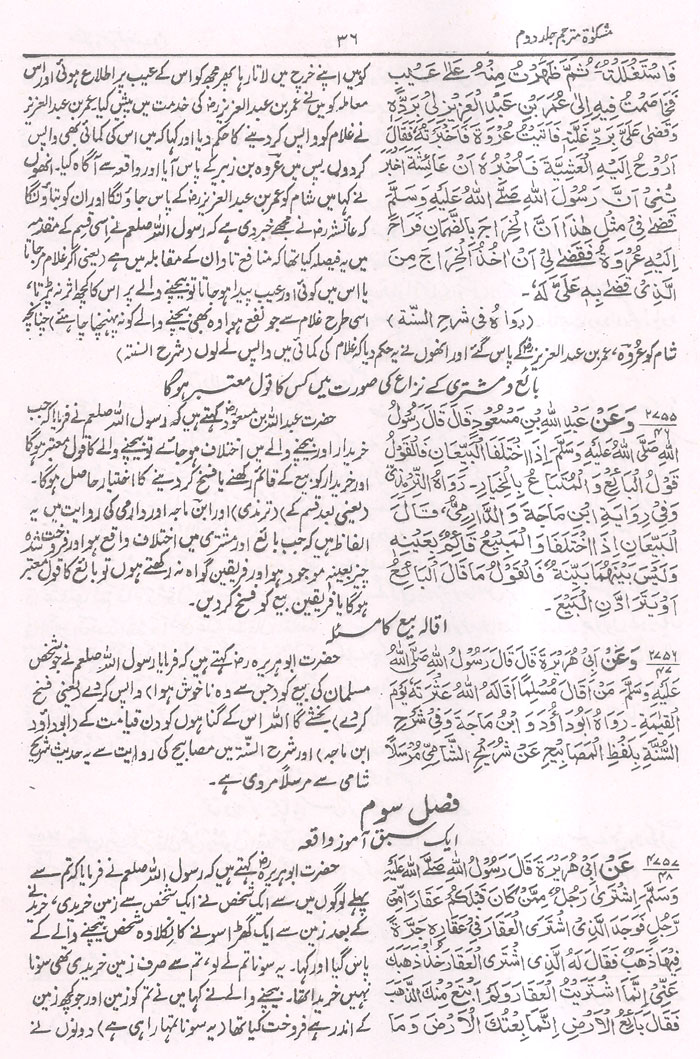 مشکوٰۃ مترجم جلد دوم
۳۶
فَاسْتَغْلَلْتُهٗ ثُمَّ ظَهَرْتُ مِنْهُ عَلٰی عَیْبٍ
فَخَاصَمْتُ فِیْهِ اِلٰی عُمَرَ بْنِ عَبْدِ الْعَزِیْزِ فَقَضٰی لِیْ بِرَدِّهٖ
وَقَضٰی عَلَیَّ بِرَدِّ غَلَّتِهٖ فَاَتَیْتُ عُرْوَةَ فَاَخْبَرْتُهٗ فَقَالَ
اَرُوْحُ اِلَیْهِ الْعَشِیَّةَ فَاُخْبِرُهٗ اَنَّ عَائِشَةَ اَخْبَرَ
تْنِیْ اَنَّ رَسُوْلَ اللهِ صَلَّی اللهُ عَلَیْهِ وَسَلَّمَ
قَضٰی فِیْ مِثْلِ هٰذَا اَنَّ الْخَرَاجَ بِالضَّمَانِ فَرَاحَ
اِلَیْهِ عُرْوَةُ فَقَضٰی لِیْ اَنْ اٰخُذَ الْخَرَاجَ مِنَ
الَّذِیْ قَضٰی بِهٖ عَلَیَّ لَهٗ۔
(رواہ فی شرح السنۃ)
کو میں اپنے خرچ میں لاتا رہا پھر مجھ کو اس کے عیب پر اطلاع ہوئی اور اس
معاملہ کو میں نے عمر بن عبدالعزیزؒ کی خدمت میں پیش کیا عمر بن عبدالعزیز
نے غلام کو واپس کر دینے کا حکم دیا اور کہا کہ میں اس کی کمائی بھی واپس
کردوں پس میں عروہ بن زبیر کے پاس آیا اور واقعہ سے آگاہ کیا۔ انھوں
نے کہا میں شام کو عمر بن عبدالعزیزؒ کے پاس جاؤنگا اور ان کو بتاؤنگا
کہ عائشہؓ نے مجھے خبر دی ہے کہ رسول اللہ صلعم نے اسی قسم کے مقدمہ
میں یہ فیصلہ کیا تھا کہ منافع تاوان کے مقابلہ میں ہے (یعنی اگر غلام مرجاتا
یا اس میں کوئی اور عیب پیدا ہو جاتا تو بیچنے والے پر اس کا کچھ اثر نہ پڑتا،
اسی طرح غلام سے جو نفع ہوا وہ بھی بیچنے والے کو نہ پہنچنا چاہئے) چنانچہ
شام کو عروہؒ، عمر بن عبدالعزیزؒ کے پاس گئے اور انھوں نے یہ حکم دیا کہ غلام کی کمائی میں واپس لے لوں (شرح السنۃ)
بائع و مشتری کے نزاع کی صورت میں کس کا قول معتبر ہوگا
۲۷۵۵
وَعَنْ عَبْدِ اللهِ بْنِ مَسْعُوْدٍ قَالَ قَالَ رَسُوْلُ
اللهِ صَلَّی اللهُ عَلَیْهِ وَسَلَّمَ اِذَا اخْتَلَفَ الْبَیِّعَانِ فَالْقَوْلُ
قَوْلُ الْبَائِعِ وَالْمُبْتَاعُ بِالْخِیَارِ۔ رَوَاهُ التِّرْمِذِیُّ
وَفِیْ رِوَایَةِ ابْنِ مَاجَةَ وَالدَّارِمِیِّ، قَالَ
الْبَیِّعَانِ اِذَا اخْتَلَفَا وَالْمَبِیْعُ قَائِمٌ بِعَیْنِهٖ
وَلَیْسَ بَیْنَهُمَا بَیِّنَةٌ فَالْقَوْلُ مَا قَالَ الْبَائِعُ
اَوْ یَتَرَادَّانِ الْبَیْعَ۔
حضرت عبداللہ بن مسعودؓ کہتے ہیں کہ رسول اللہ صلعم نے فرمایا کہ جب
خریدار اور بیچنے والے میں اختلاف ہو جائے تو بیچنے والے کا قول معتبر ہوگا
اور خریدار کو بیع کے قائم رکھنے یا فسخ کر دینے کا اختیار حاصل ہوگا۔
(یعنی بعد قسم کے) (ترمذی) اور ابن ماجہ اور دارمی کی روایت میں یہ
الفاظ ہیں کہ جب بائع اور مشتری میں اختلاف واقع ہو اور فروخت شدہ
چیز بعینہ موجود ہو اور فریقین گواہ نہ رکھتے ہوں تو بائع کا قول معتبر
ہوگا یا فریقین بیع کو فسخ کر دیں۔
اقالہ بیع کا مسئلہ
۲۷۵۶
۴۷
وَعَنْ اَبِیْ هُرَیْرَةَ قَالَ قَالَ رَسُوْلُ اللهِ صَلَّی اللهُ
عَلَیْهِ وَسَلَّمَ مَنْ اَقَالَ مُسْلِمًا اَقَالَهُ اللهُ عَثْرَتَهٗ یَوْمَ
الْقِیٰمَةِ۔ رَوَاهُ اَبُوْدَاؤدَ وَابْنُ مَاجَةَ وَفِیْ شَرْحِ
السُّنَّةِ بِلَفْظِ الْمَصَابِیْحِ عَنْ شُرَیْحٍ الشَّامِیِّ مُرْسَلًا
حضرت ابوہریرہؓ کہتے ہیں کہ فرمایا رسول اللہ صلعم نے جو شخص
مسلمان کی بیع کو (جس سے وہ ناخوش ہوا) واپس کر دے (یعنی فسخ
کر دے) بخشے گا اللہ اس کے گناہوں کو دن قیامت کے (ابوداؤد
ابن ماجہ) اور شرح السنۃ میں مصابیح کی روایت سے یہ حدیث شریح
شامی سے مرسلاً مروی ہے۔
فصل سوم
ایک سبق آموز واقعہ
۲۷۵۷
۴۸
عَنْ اَبِیْ هُرَیْرَةَ قَالَ رَسُوْلُ اللهِ صَلَّی اللهُ عَلَیْهِ
وَسَلَّمَ اِشْتَرٰی رَجُلٌ مِّمَّنْ كَانَ قَبْلَكُمْ عَقَارًا مِّنْ
رَّجُلٍ فَوَجَدَ الَّذِی اشْتَرَی الْعَقَارَ فِیْ عَقَارِهٖ جَرَّةً
فِیْهَا ذَهَبٌ فَقَالَ لَهُ الَّذِی اشْتَرَی الْعَقَارَ خُذْ ذَهَبَكَ
عَنِّیْ اِنَّمَا اشْتَرَیْتُ الْعَقَارَ وَلَمْ اَبْتَعْ مِنْكَ الذَّهَبَ
فَقَالَ بَائِعُ الْاَرْضِ اِنَّمَا بِعْتُكَ الْاَرْضَ وَمَا
حضرت ابوہریرہؓ کہتے ہیں کہ رسول اللہ صلعم نے فرمایا کہ تم سے
پہلے لوگوں میں سے ایک شخص نے ایک شخص سے زمین خریدی، خریدنے
کے بعد زمین سے ایک گھڑا سونے کا نکلا وہ شخص بیچنے والے کے
پاس گیا اور کہا۔ یہ سونا تم لے لو، تم سے صرف زمین خریدی تھی سونا
نہیں خریدا تھا۔ بیچنے والے نے کہا میں نے تم کو زمین اور جو کچھ زمین
کے اندر ہے فروخت کیا تھا (یہ سونا تمہارا ہی ہے) دونوں نے